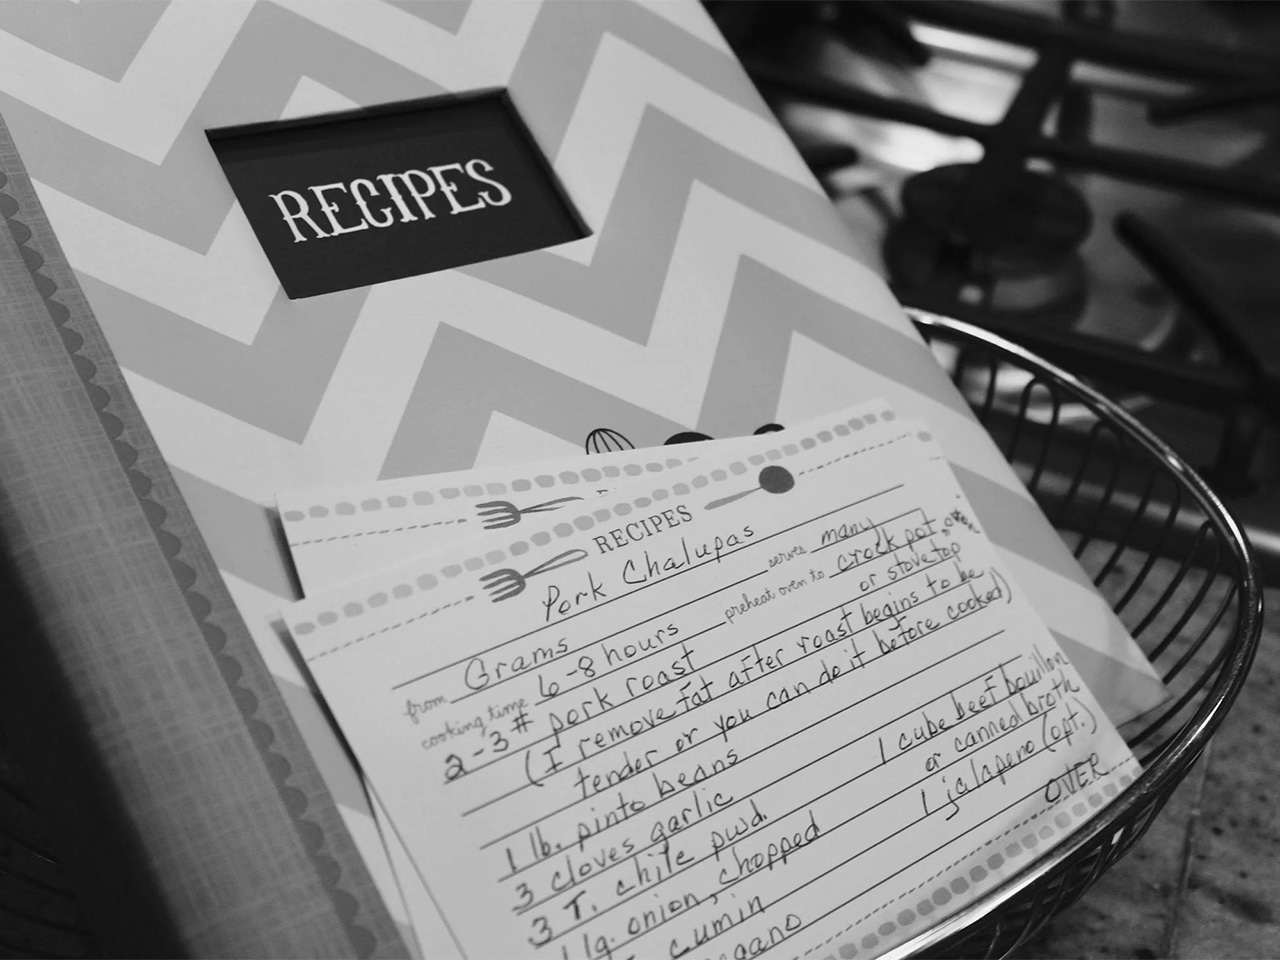 RECIPES
RECIPES
Pork Chalupas
from Grams serves many
cooking time 6-8 hours preheat oven to crock pot, oven
or stovetop
2-3# pork roast
(I remove fat after roast begins to be
tender or you can do it before cooked)
1 lb. pinto beans
3 cloves garlic 1 cube beef bouillon
3 T. chile pwd. or canned broth
1 lg. onion, chopped 1 jalapeno (opt.)
cumin OVER